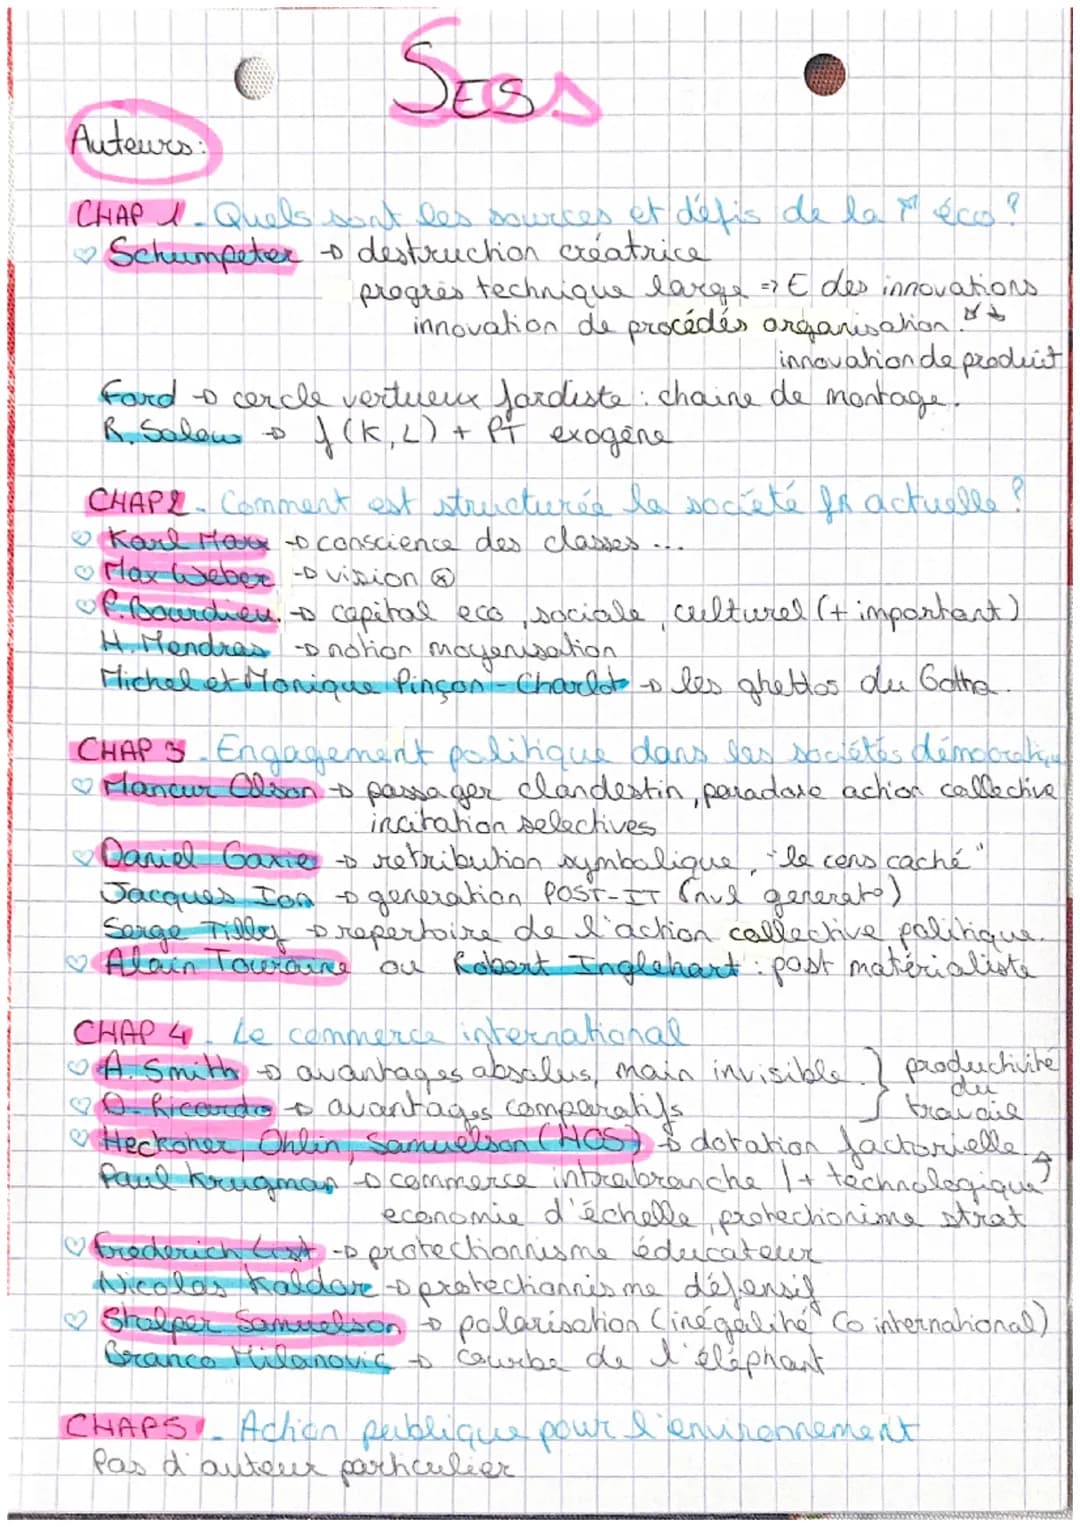 SES
Auteurs:
CHAP 1 - Quels sont les sources et défis de la éco ?
♡ Schumpeter → destruction créatrice
progrès technique large => E des innovations
innovation de procédés organisation.
innovation de produit
Ford → cercle vertueux fordiste : chaine de montage.
R. Solow → f(K, L) + PT exogène
CHAP 2 - Comment est structurée la société fr actuelle ?
♡ Karl Marx → conscience des classes ...
♡ Max Weber → vision ⊗
♡ P. Bourdieu → capital eco, sociale, culturel (+ important)
H. Mendras → notion moyenisation
Michel et Monique Pinçon-Charlot → les ghettos du Gotha.
CHAP 3 - Engagement politique dans les sociétés démocratique
♡ Mancur Olson → passager clandestin, paradoxe action collective
incitation selectives
♡ Daniel Gaxie → retribution symbolique, "le cens caché"
Jacques Ion → generation POST-IT
Serge Tilley → repertoire de l'action collective politique.
♡ Alain Touraine ou Robert Inglehart : post matérialiste
CHAP 4 - Le commerce international
♡ A. Smith → avantages absolus, main invisible. } productivité
♡ D. Ricardo → avantages comparatifs } du travail
♡ Heckoher, Ohlin, Samuelson (HOS) → dotation factorielle
Paul Krugman → commerce intrabranche / + technologique
economie d'échelle, protectionime strat
♡ Frederich List → protectionnisme éducateur
Nicolas Kaldor → protectionnisme défensif
♡ Stolper Samuelson → polarisation (inégalité Co international)
Branco Milanovic → courbe de l'éléphant
CHAP 5 - Action publique pour l'environnement
Pas d'auteur particulier